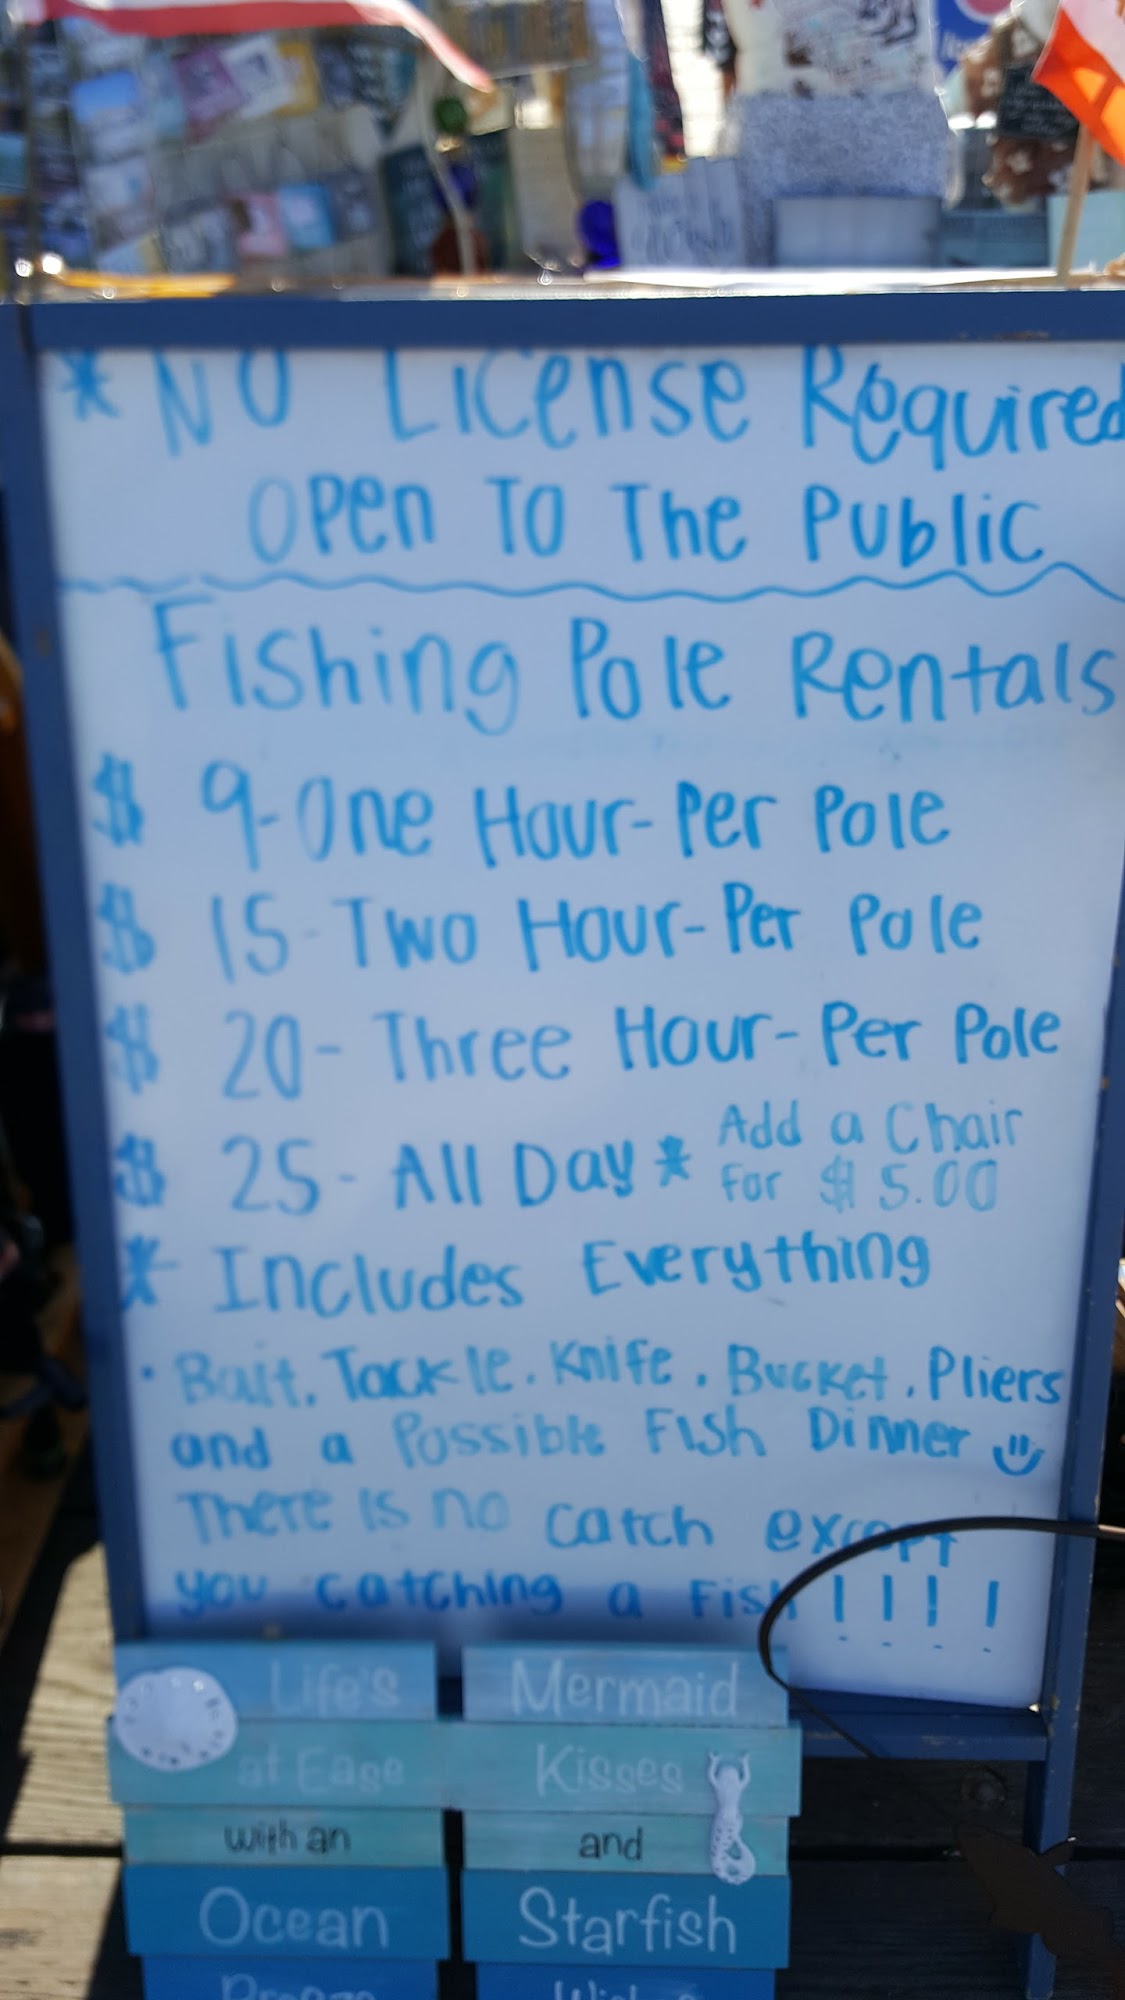 * NO License Required
Open To The Public
Fishing Pole Rentals
$ 9-One Hour-Per Pole
$ 15-Two Hour-Per Pole
$ 20-Three Hour-Per Pole
$ 25-All Day * Add a Chair
For $ 5.00
* Includes Everything
· Bait. Tackle. Knife. Bucket. Pliers
and a Possible Fish Dinner
There Is no catch except
you catching a Fish !!!!
Life's
at Ease
with an
Ocean
Breeze
Mermaid
Kisses
and
Starfish